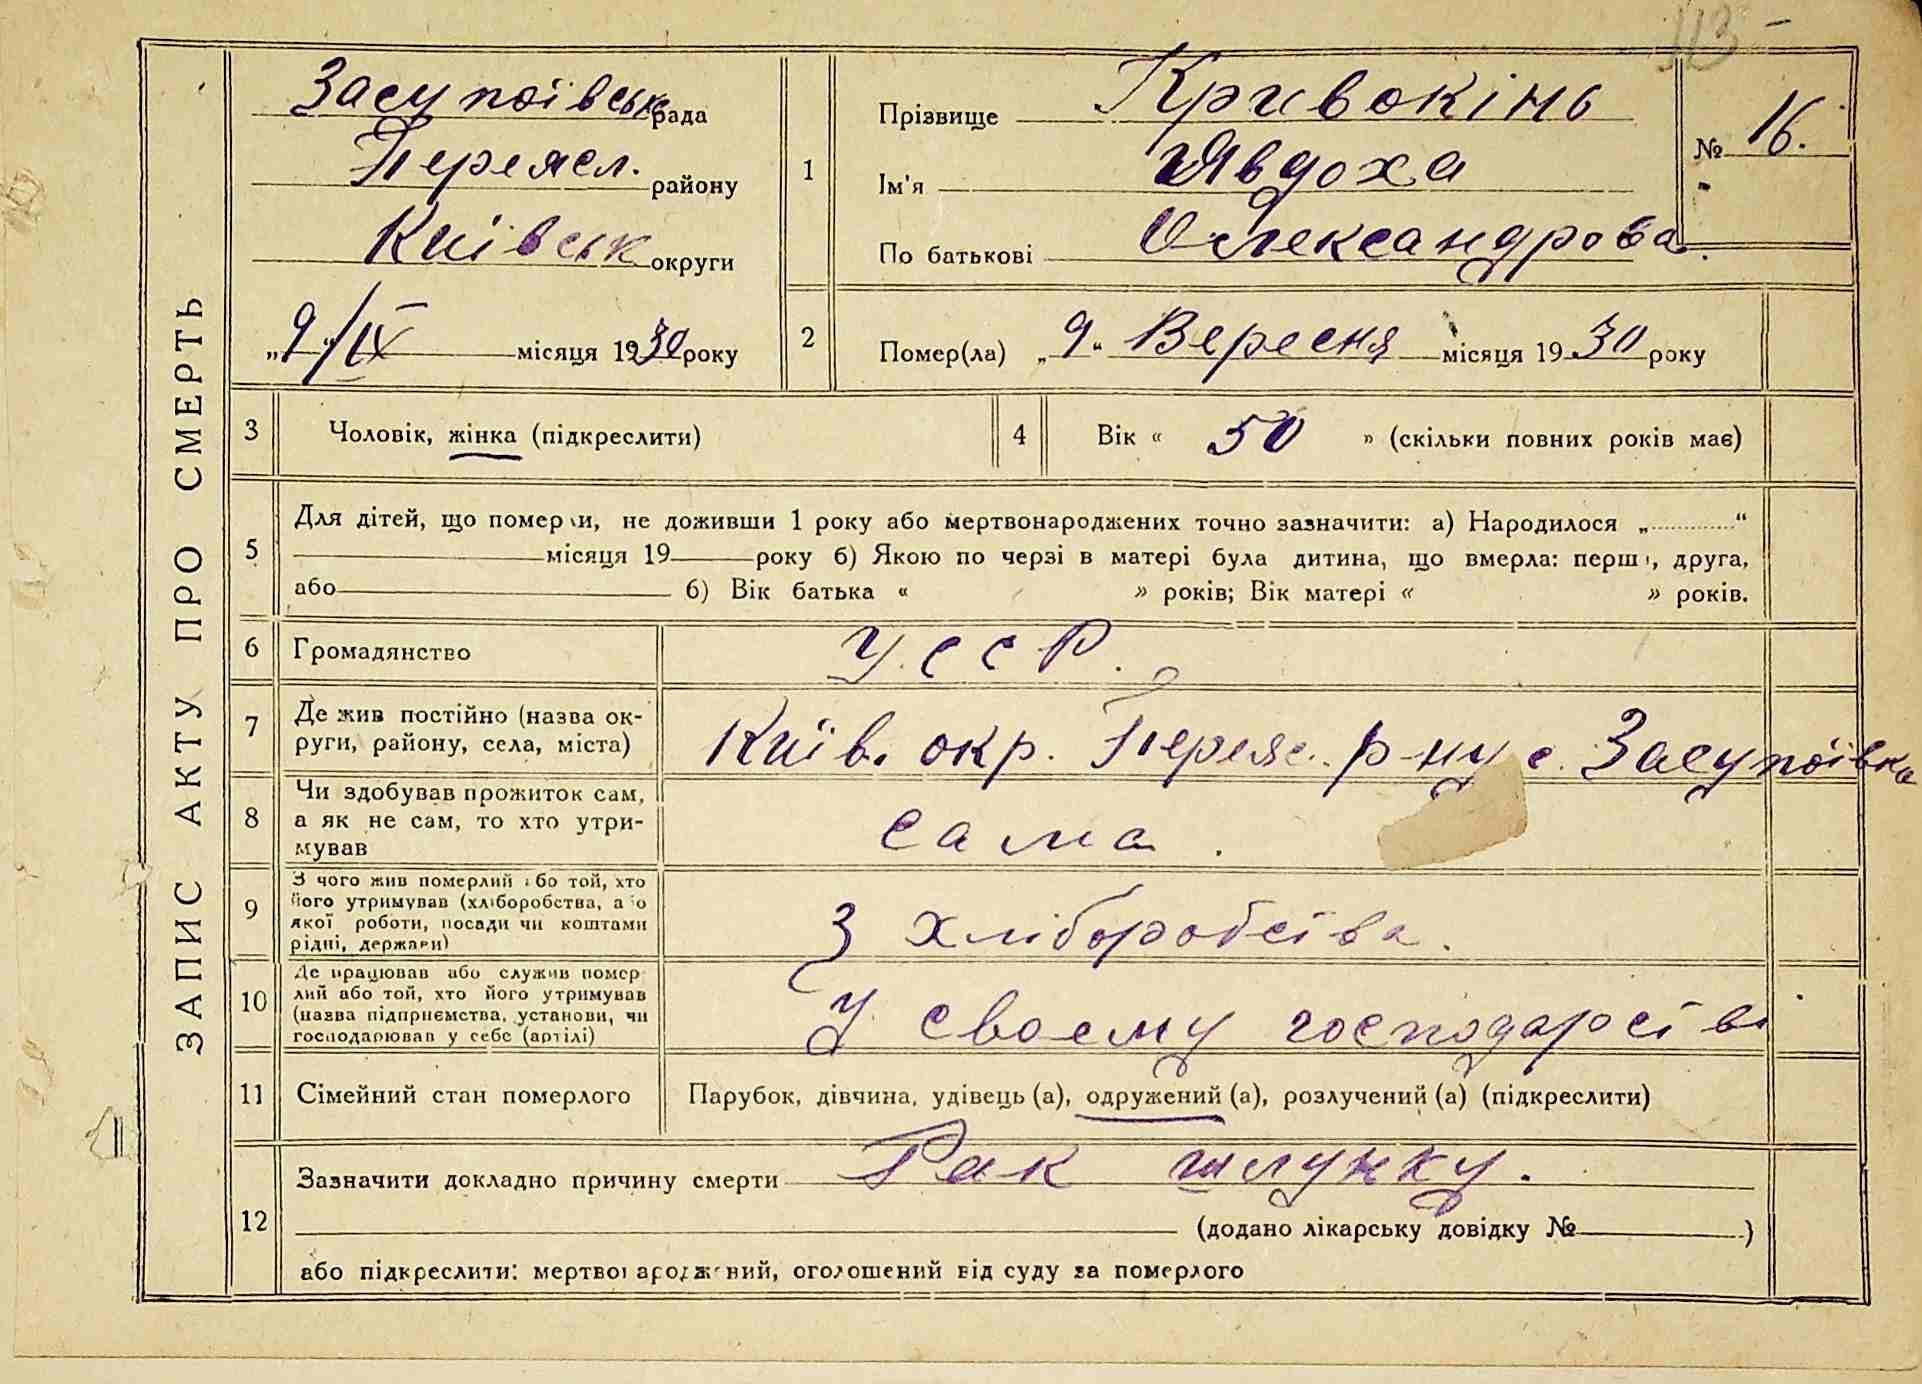 113 -
ЗАПИС АКТУ ПРО СМЕРТЬ
Засупоівськ рада
Переясл. району
Київськ округи
„9"/IX місяця 1930 року
1
Прізвище Кривокінь
Ім'я Явдоха
По батькові Олександрова.
№ 16.
2
Помер(ла) „9" Вересня місяця 1930 року
3 Чоловік, жінка (підкреслити)
4 Вік « 50 » (скільки повних років має)
5
Для дітей, що померли, не доживши 1 року або мертвонароджених точно зазначити: а) Народилося „ "
місяця 19 року б) Якою по черзі в матері була дитина, що вмерла: перша, друга,
або б) Вік батька « » років; Вік матері « » років.
6 Громадянство У.С.С.Р.
7
Де жив постійно (назва ок-
руги, району, села, міста)
Київ. окр. Переяс. р-ну с. Засупоївка
8
Чи здобував прожиток сам,
а як не сам, то хто утри-
мував
сама.
9
З чого жив померлий або той, хто
його утримував (хліборобства, або
якої роботи, посади чи коштами
рідні, держави)
З хліборобства.
10
Де працював або служив помер-
лий або той, хто його утримував
(назва підприємства, установи, чи
господарював у себе (артілі)
У своєму господарстві
11 Сімейний стан померлого
Парубок, дівчина, удівець (а), одружений (а), розлучений (а) (підкреслити)
12
Зазначити докладно причину смерти Рак шлунку.
(додано лікарську довідку № )
або підкреслити: мертвонароджений, оголошений від суду за померлого